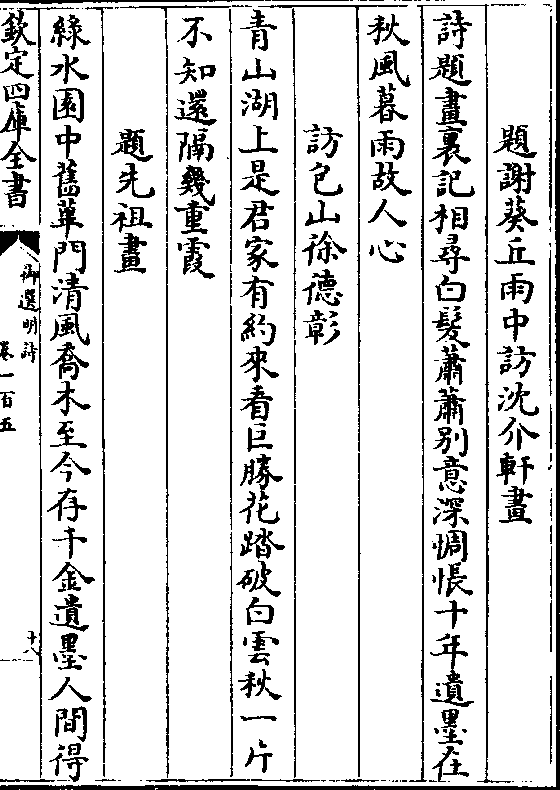 題謝葵丘雨中訪沈介軒畫
詩題畫裏記相尋白髮蕭蕭别意深惆悵十年遺墨在
秋風暮雨故人心
訪包山徐德彰
青山湖上是君家有約來看巨勝花踏破白雲秋一片
不知還隔幾重霞
題先祖畫
綠水園中舊蓽門清風喬木至今存千金遺墨人間得
欽定四庫全書
御選明詩
卷一百五
十八